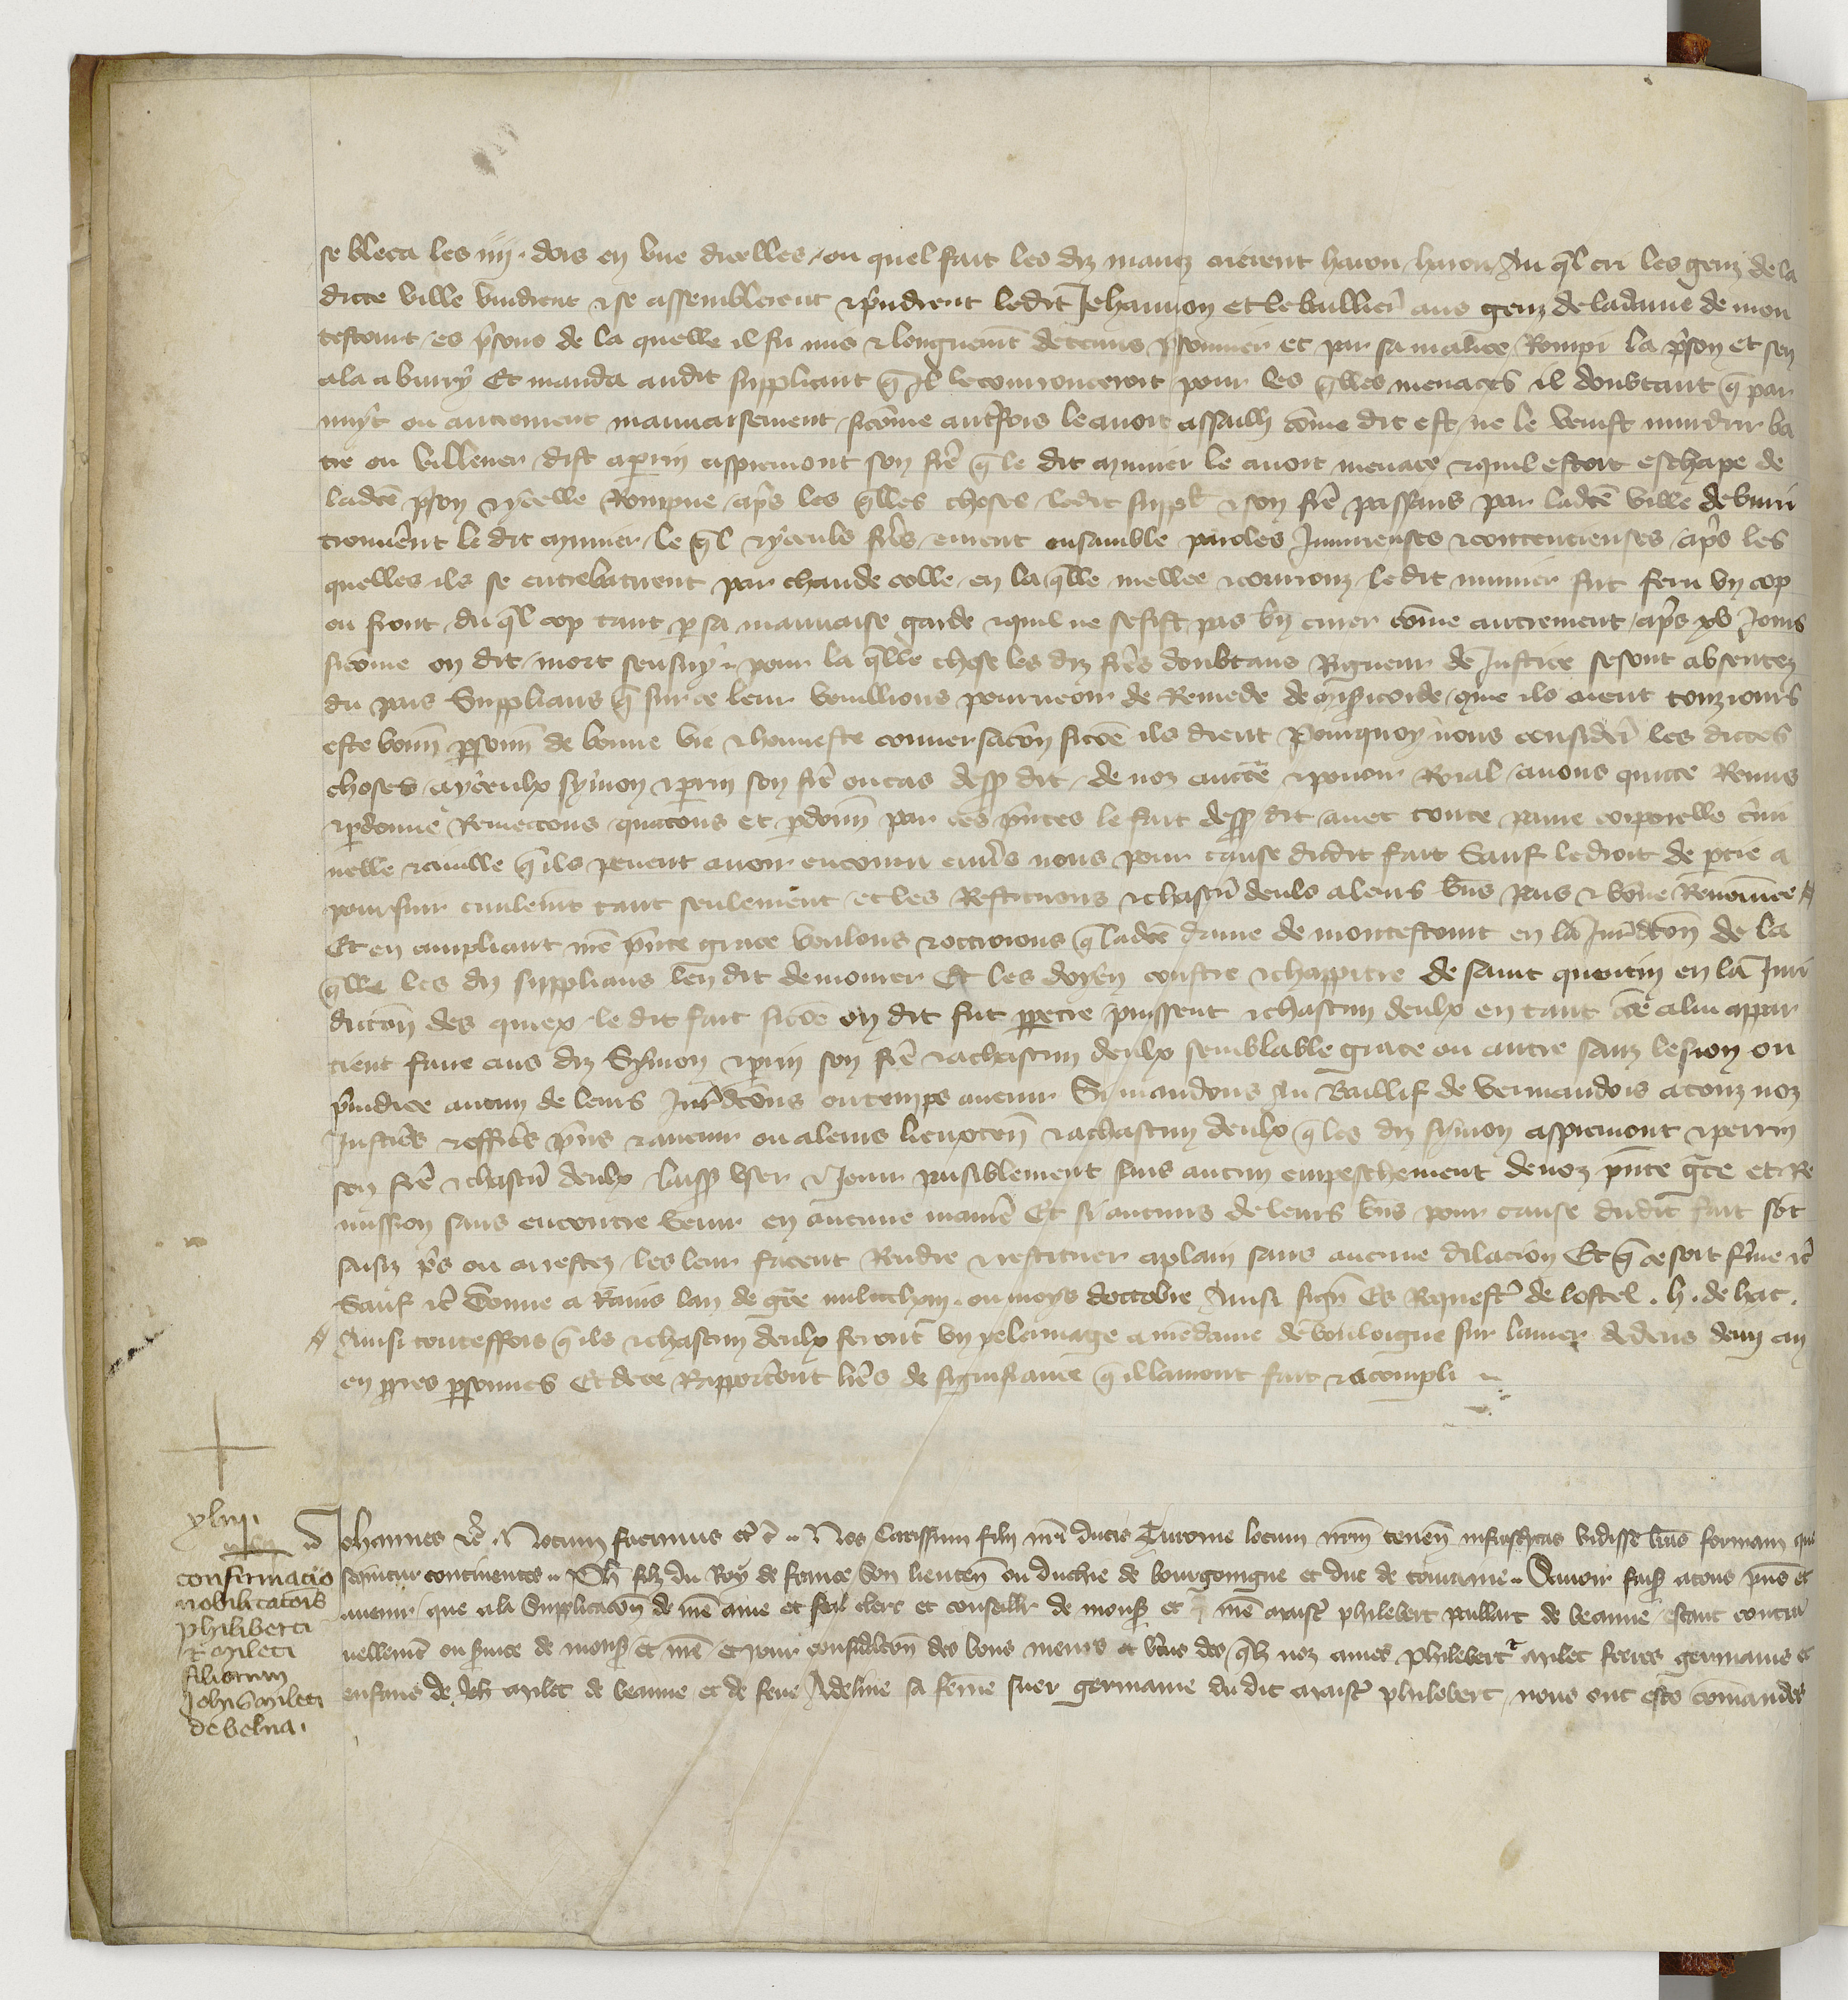 se bleca les iiij. dois en vne dicelles / ou quel fait les diz mauz crierent harou harou Au ql cri les genz de la
dicte ville vindrent & se assemblerent & prindrent ledit Jehannon et le baillier aus genz de la dame de mon
testourt / es prisons de la quelle il fu mis & longuemt detenus prisonnier et par sa malice Rompi la prison et sen
ala a buiry Et manda audit suppliant q Il le courrouceroit pour les qlles menaces il doubtant q par
nuyt ou autrement mauuaisement / sicome autrefois le auoit assailli come dit est / ne le venist murdrir ba
tre ou villener / dist a perrin aspremont son frere q le dit mmier le auoit menace & quil estoit eschape de
ladce prison & ycelle Rompue / apres les qlles choses ledit suppl & son frere passans par ladce ville de buiri
trouuerent le dit mmier / le ql & yceuls freres / eurent ensamble paroles Iniurieuses & contencieuses / apres les
quelles ils se entrebatirent par chaude colle / en la qlle mellee & courrouz / le dit mmier fut feru vn cop
ou front / du ql cop tant p sa mauuaise garde & quil ne se fist pas bn curer come autrement / apres xv Jours
sicome on dit / mort sensuy .. pour la qlle chose les diz freres doubtans Rigueur de Justice se sont absentez
du pais Supplians q sur ce leur vouillions pourueoir de Remede de misericorde / q me ils aient touziours
este bonn personn de bonne vie & honneste conuersacon sicoe ils dient Pourquoy nous consider les dictes
choses / a yceulx symon & perrin son frere ou cas dess dit / de noz aucte & pouoir Roial / auons quicte Remis
& pdonne Remectons quictons et pdonn par ces pntes le fait dess dit / auec toute paine corporelle crimi
nelle & ciuille q ils peuent auoir encouru enuers nous pour cause dudit fait Sauf le droit de partie a
poursuir ciuilemt tant seulement / et les Restituons & chascu deuls a leurs bns pais & bonne Renomee
Et en ampliant nre pnte grace voulons & octroions q ladce dame de montestourt en la Juridicon de la
qlle les diz supplians len dit demourer Et les doyen coustre & chappitre de saint quentin en la Juri
dicion des quiex / le dit fait sicoe on dit fut ppetre puissent & chascun deulx en tant coe a lui appar
tient faire aus diz Symon & perrin son frere & a chascun deulx semblable grace ou autre sanz lesion ou
preiudice aucun de leurs Juridcons ou temps auenir Si mandons Au Baillif de Vermandois a touz noz
Justiciers & officiers pns & auenir ou a leurs lieuxten & a chascun deulx q les diz symon aspremont & perrin
son frere & chascu deulx laiss vser & Jouir paisiblement sans aucun empeschement de noz pnte gce et Re
mission sans encontre venir en aucune maniere Et si aucuns de leurs bns pour cause dudit fait sot
saisiz pris ou arrestez / les leur facent Rendre & restituer a plain sans aucune dilacion Et q ce soit ferme &c
Sauf &c Donne a Rains lan de gce mil ccc lxiij. ou moys doctobre Ainsi sign Es Requestes de lostel . h. de hac.
Ainsi touteffois q ils & chascun deulx feront vn pelerinage a ne dame de bouloigne sur la mer dedens dun an
en ppres personnes Et de ce Rapporteront lres de signifiance q il lauront fait & acompli
xlvij.
confirmacio
nobilitatois
philiberti
& mileti
filiorum
Johis mileti
de belna.
Johannes &c .. Notum facimus &c .. Nos Carissimi filij nri ducis Turonie locum nrm tenen infrascptas vidisse lras formam que
sequitur continentes .. Ph filz du Roy de france Son lieuten ou duchie de bourgoingne et duc de touraine .. Sauoir fais a touz pns et
auenir / que a la Supplicacon de nre ame et feal clerc et conseiller de mons et nre maistre philebert paillart de beaune / estant contin
uellemt ou seruice de mons et nre / et pour consideracon des bons meurs et vtus des qlz noz amez philebert & milet freres germains et
enfans de Jeh milet de beaune et de feue Adeline sa feme suer germaine du dit maistre philebert / nous ont este comandes